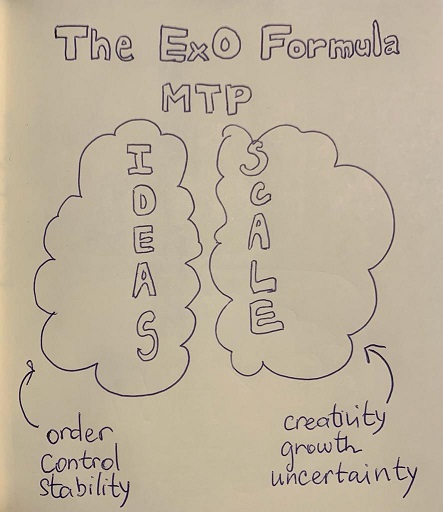 The ExO Formula
MTP
I
D
E
A
S
S
C
A
L
E
order
control
stability
creativity
growth
uncertainty